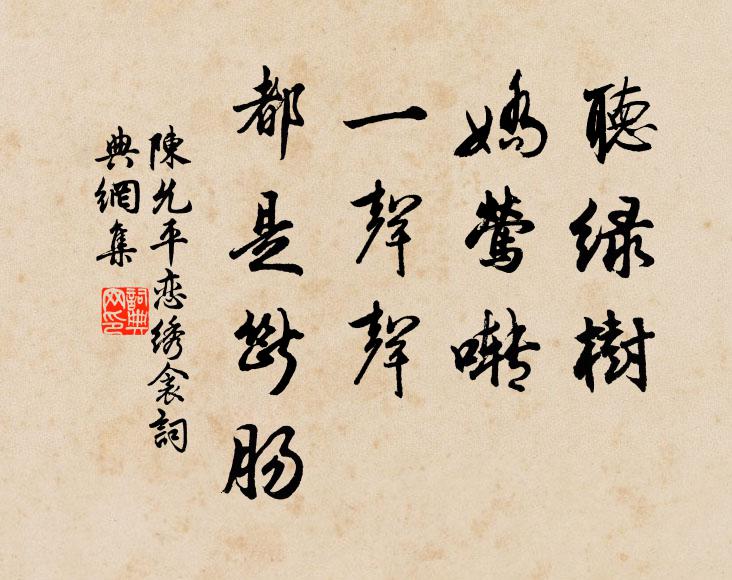 聽緑樹
嬌鶯囀
一聲聲
都是斷腸
陳允平恋绣衾詞
典網集
詞典网印